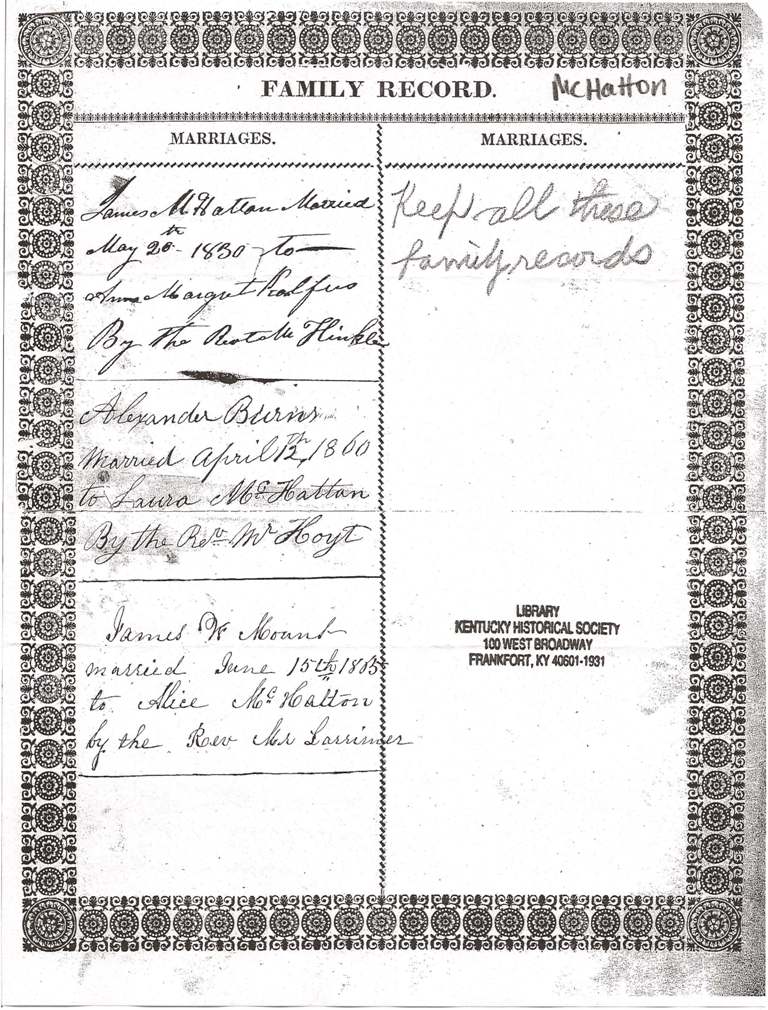 FAMILY RECORD.
McHatton
MARRIAGES.
James McHatton Married
May 20th 1830 to
Anna Margret
By the Hinkle
Alexander Burns
Married April 12th, 1860
to Laura McHatton
By the Rev Mr Hoyt
James W Mount
married June 15th 1865
to Alice McHatton
by the Rev Mr Larrimer
MARRIAGES.
Keep all these
family records
LIBRARY
KENTUCKY HISTORICAL SOCIETY
100 WEST BROADWAY
FRANKFORT, KY 40601-1931